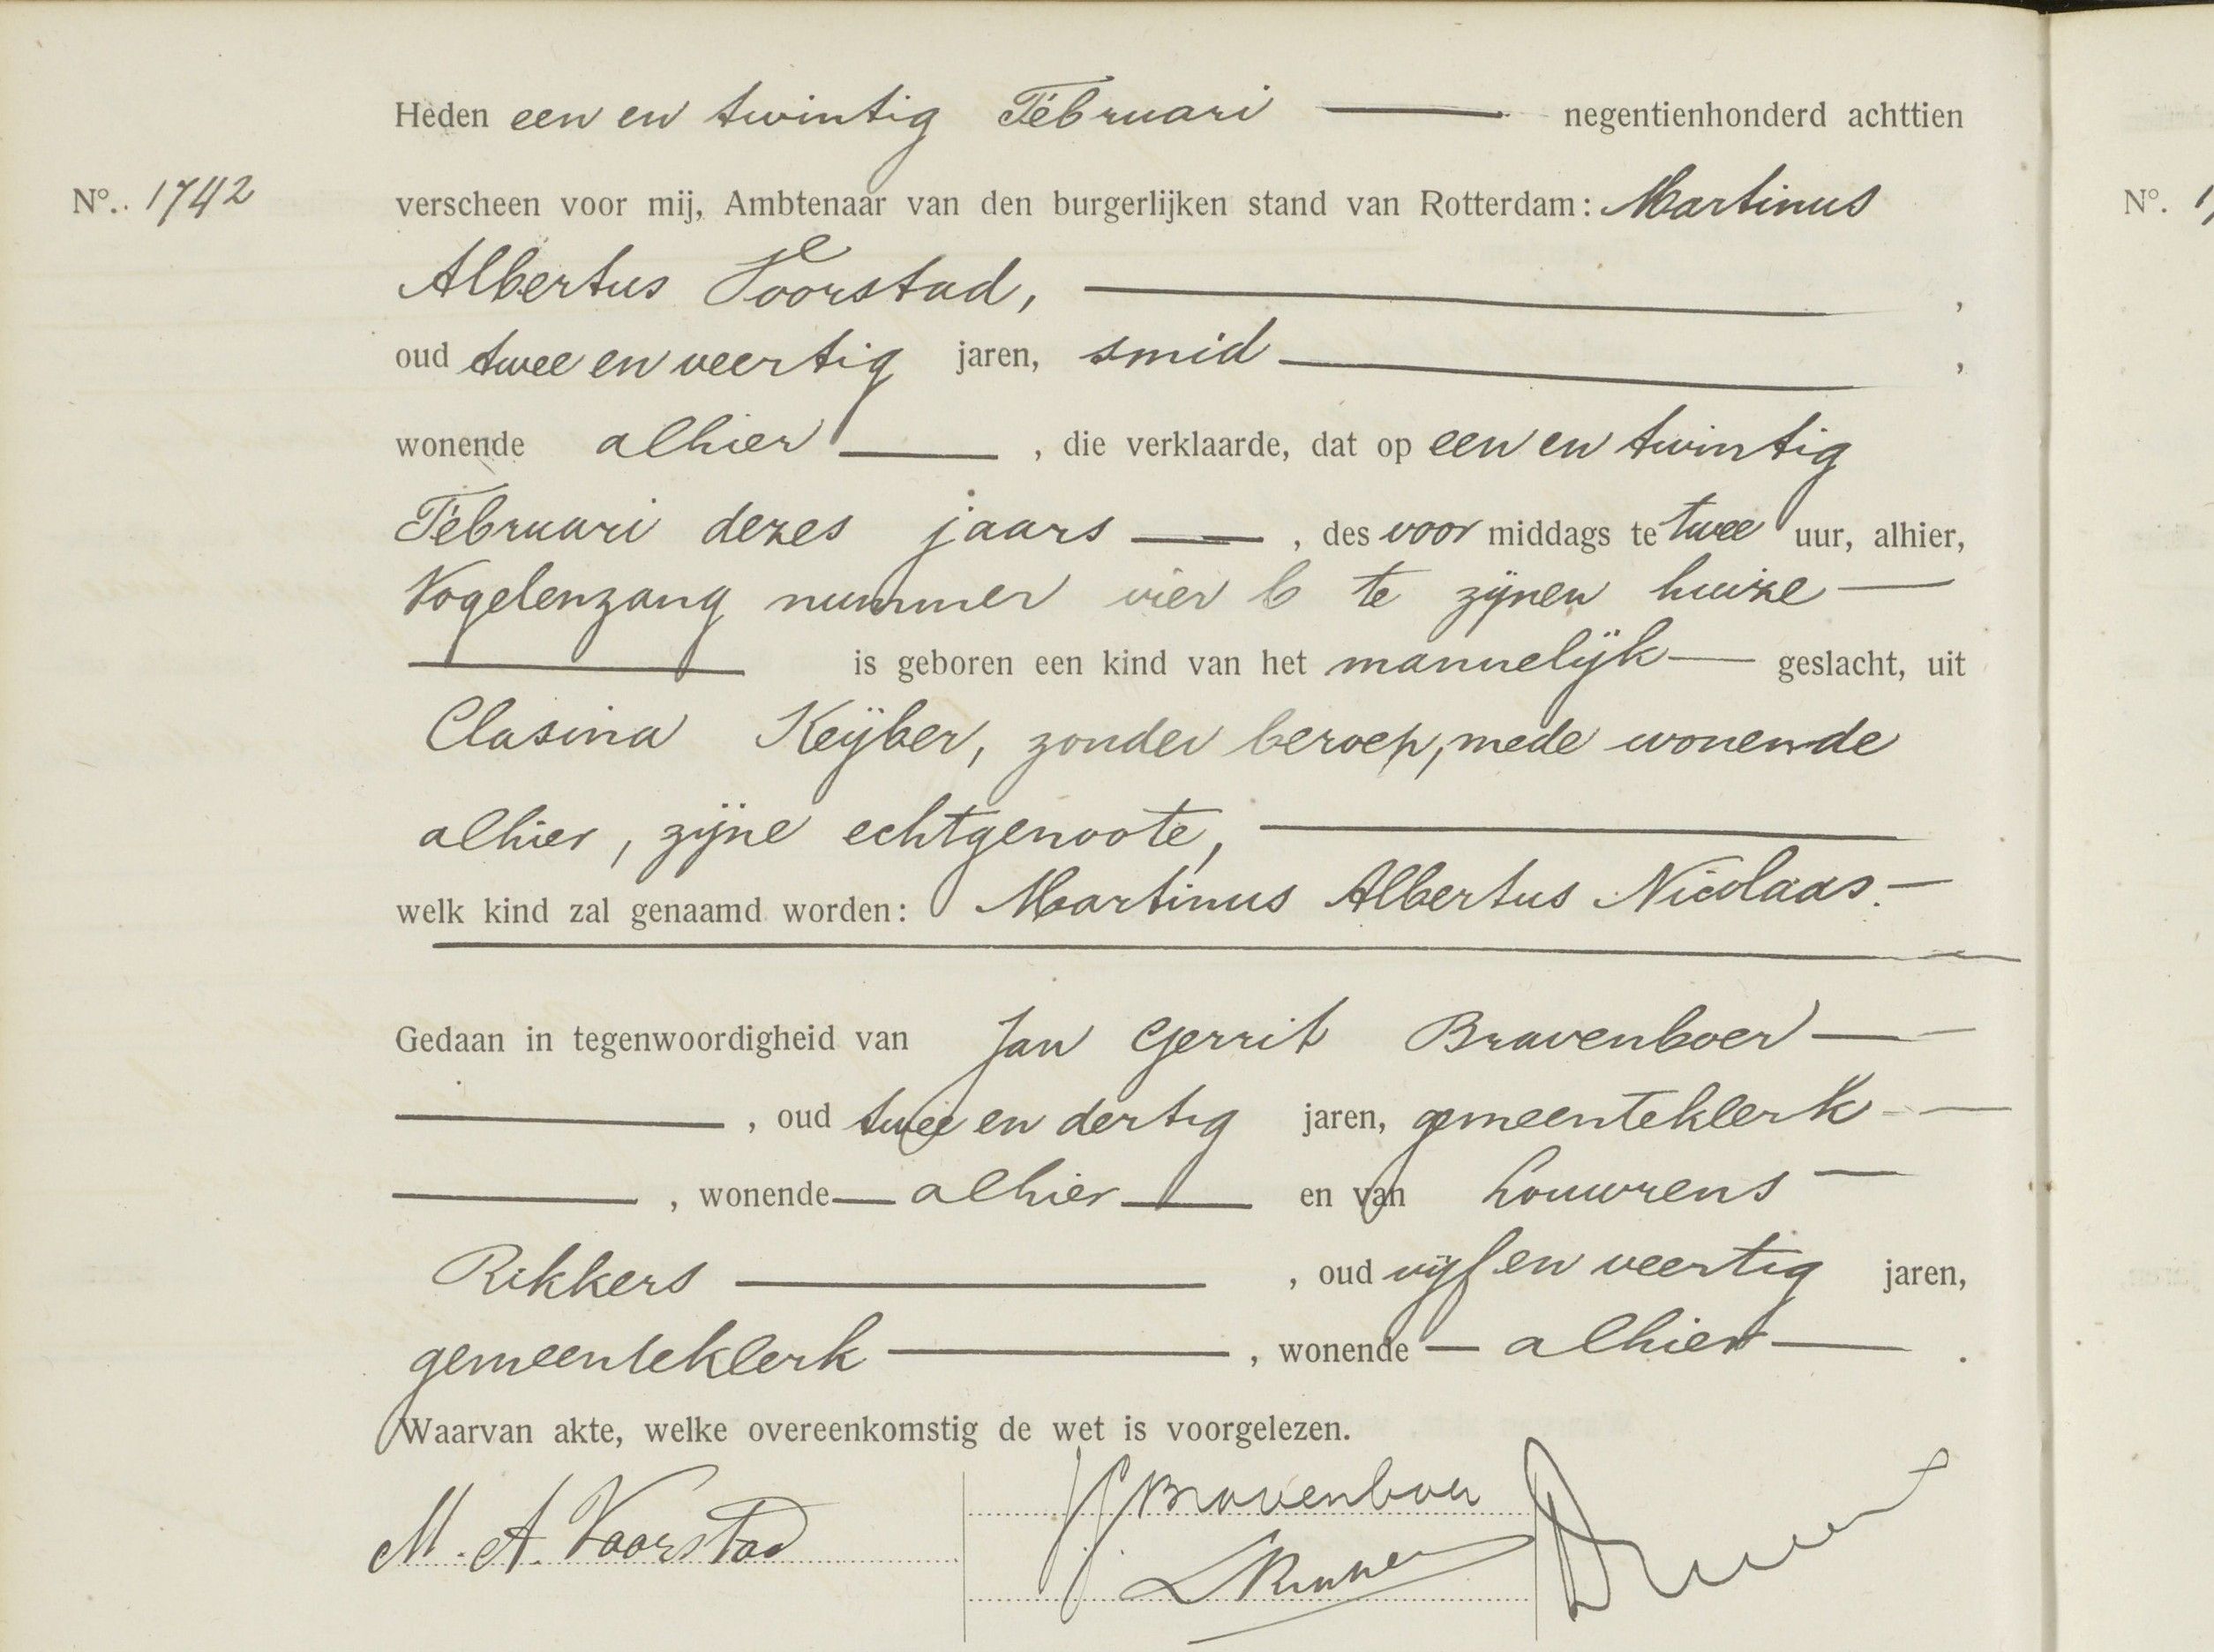 Heden een en twintig Februari negentienhonderd achttien
No. 1742 verscheen voor mij, Ambtenaar van den burgerlijken stand van Rotterdam: Martinus
Albertus Voorstad, ,
oud twee en veertig jaren, smid ,
wonende alhier , die verklaarde, dat op een en twintig
Februari dezes jaars , des voor middags te twee uur, alhier,
Vogelenzang nummer vier b te zijnen huize
is geboren een kind van het mannelijk geslacht, uit
Clasina Keijber, zonder beroep, mede wonende
alhier, zijne echtgenoote,
welk kind zal genaamd worden: Martinus Albertus Nicolaas.
Gedaan in tegenwoordigheid van Jan Gerrit Bravenboer
, oud twee en dertig jaren, gemeenteklerk
, wonende alhier en van Louwrens
Rikkers , oud vijf en veertig jaren,
gemeenteklerk , wonende alhier .
Waarvan akte, welke overeenkomstig de wet is voorgelezen.
JGBravenboer
M. A. Voorstad
No.